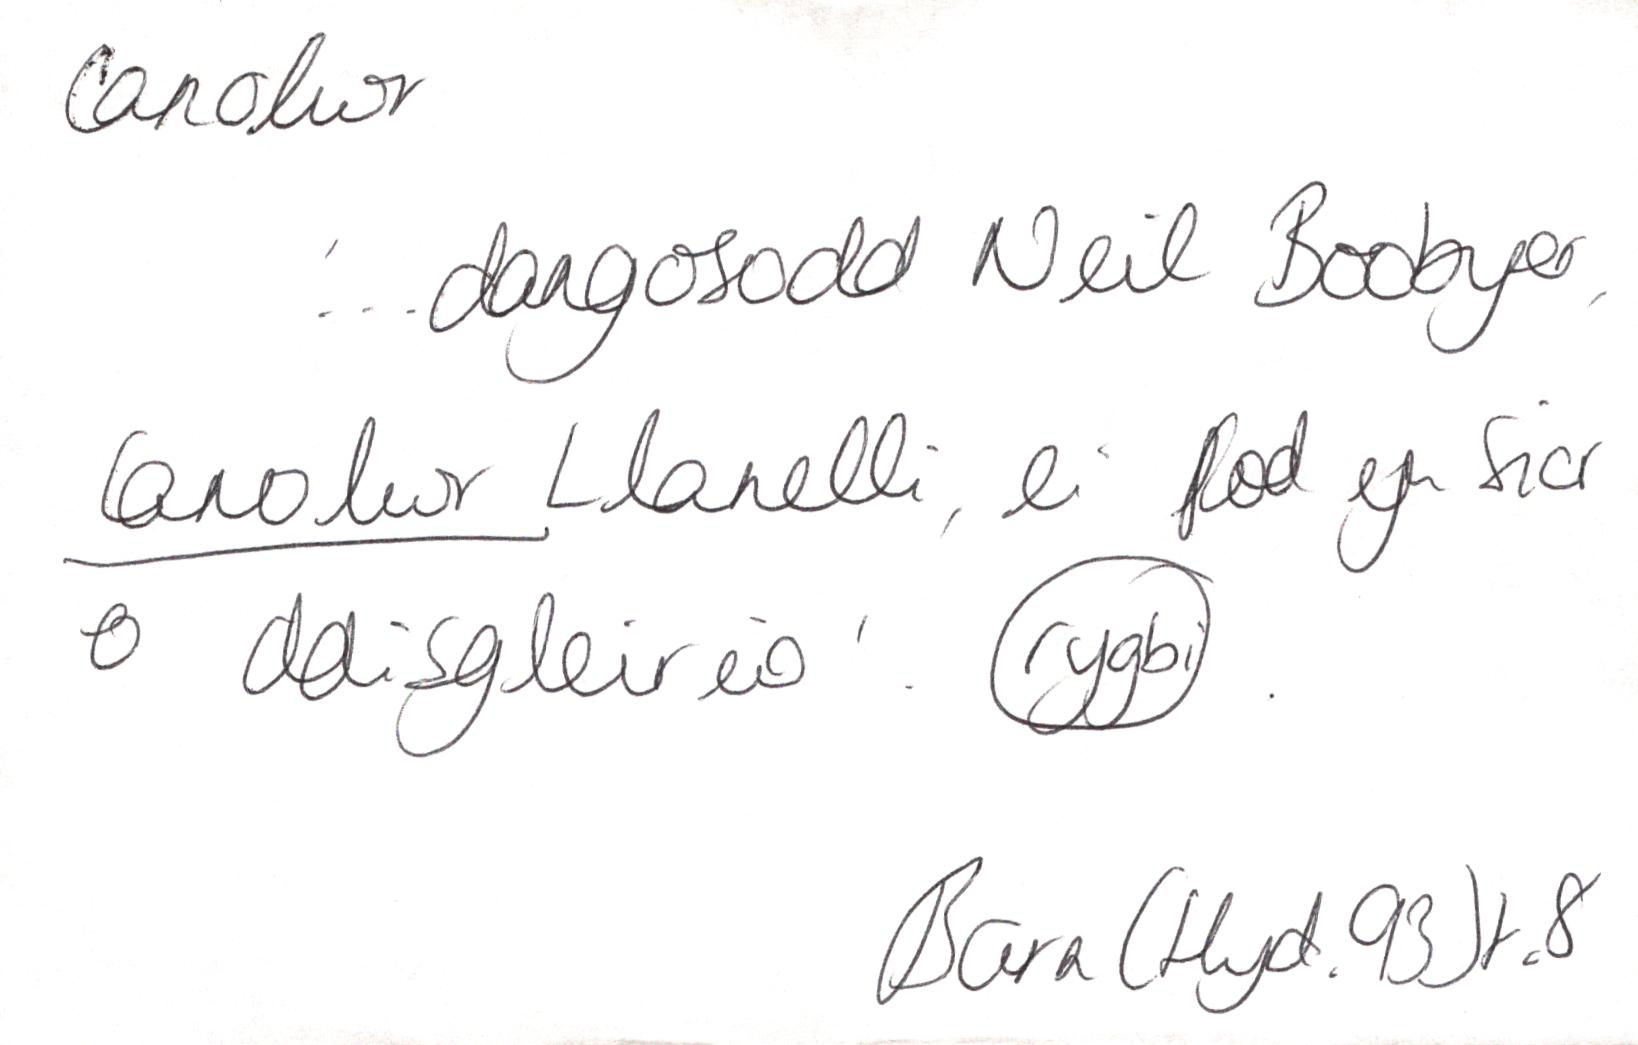 Canolwr
'...dangosodd Neil Boobyer,
Canolwr Llanelli, ei fod yn sicr
o ddisgleirio'. rygbi.
Barn (Hyd. 93) t. 8